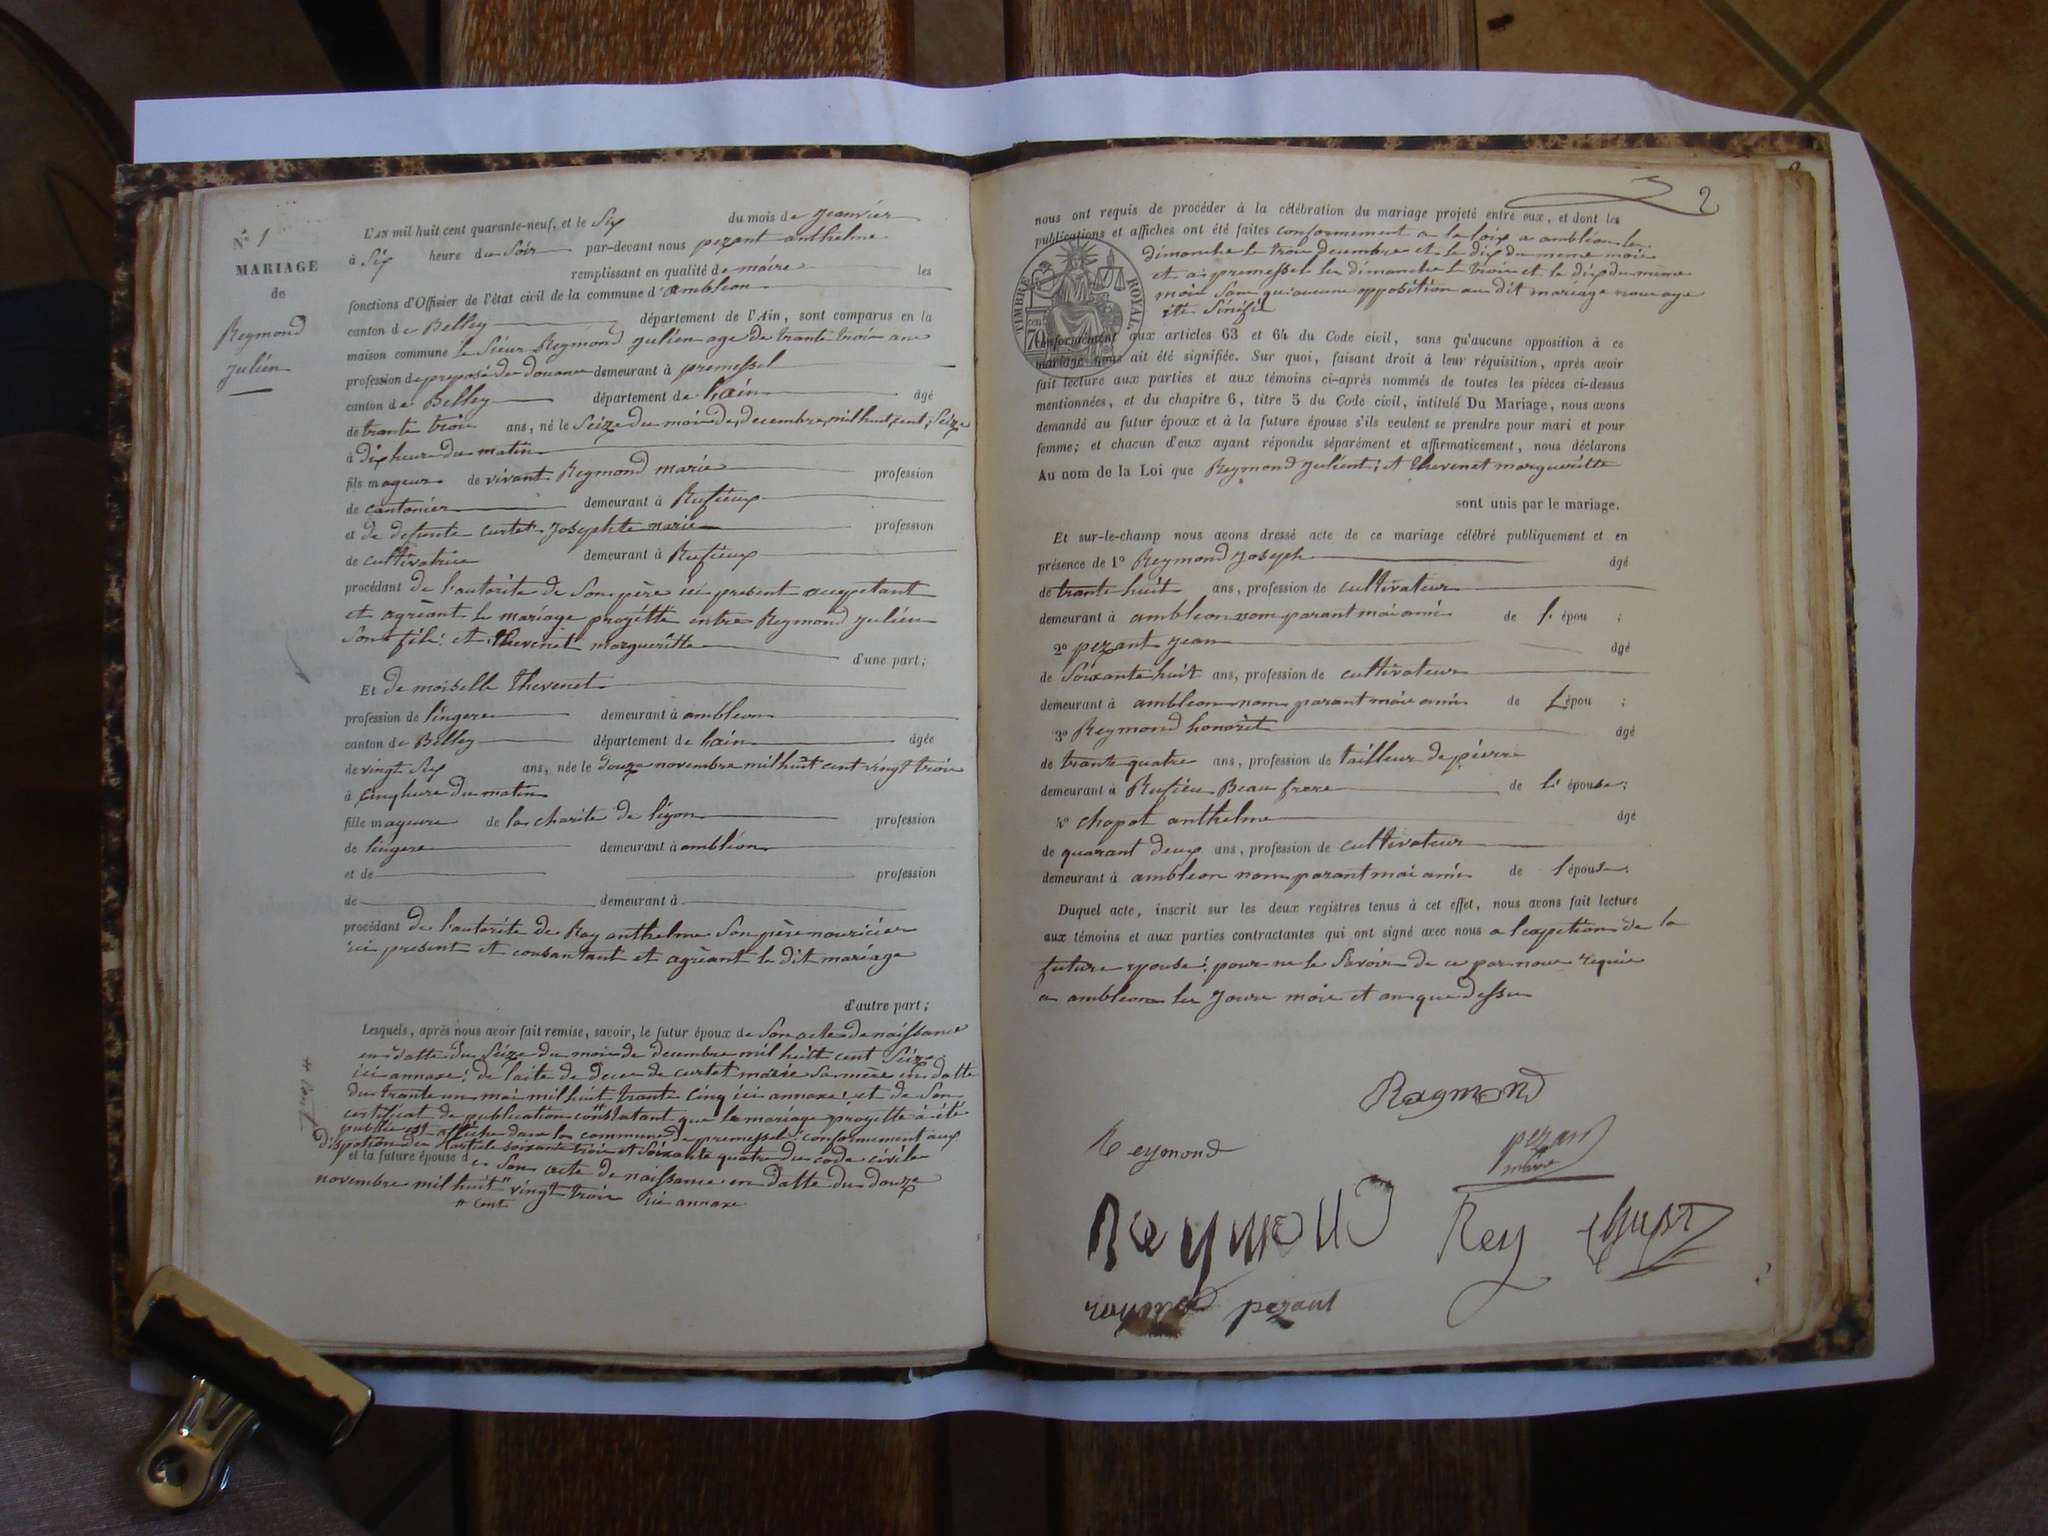 N° 1
MARIAGE
de
Reymond
julien
L'AN mil huit cent quarante-neuf, et le Six du mois de jeanvier
à Six heure du Soir par-devant nous pezant anthelme
remplissant en qualité de maire les
fonctions d'Officier de l'état civil de la commune d'ambleon
canton de Belley département de l'Ain, sont comparus en la
maison commune le Sieur Reymond julien age de trante trois ans
profession de preposé des douanes demeurant à premessel
canton de Belley département de lain âgé
de trante trois ans, né le Seize du mois de decembre mil huit cent Seize
à dix heure du matin
fils mageur de vivant Reymond marie profession
de cantonier demeurant à Rufieux
et de defunte curtet Josephte marie profession
de cultivatrice demeurant à Rufieux
procédant de l'autorité de Son père ici present acceptant
et agrèant le mariage progètte entre Reymond julien
Son fils et thevenet margueritte d'une part;
Et de moiselle thevenet
profession de lingere demeurant à ambleon
canton de Belley département de lain âgée
de vingt Six ans, née le douze novembre mil huit cent vingt trois
à cinq hure du matin
fille mageure de la charite de liyon profession
de lingere demeurant à ambléon
et de profession
de demeurant à
procédant de l'autorité de Rey anthelme Son père nouricier
ici present et consantant et agrèant le dit mariage
d'autre part;
Lesquels, après nous avoir fait remise, savoir, le futur époux de Son acte de naissance
en datte du Seize du mois de decembre mil huit cent Seize
ici annaxe: de l'acte de deces de curtet marie Sa mère en datte
du trante un mai mil huit trante cinq ici annaxe: et de Son
certificat de publication constatant que le mariage progette à été
publie et affiche dans la commune de premessel: conformement aux
dispotion des article soixante trois et Soixante quatre du code civile
et la future épouse de Son acte de naissance en datte du douze
novembre mil huit " vingt trois ici annaxe
# cent
# cent
2
nous ont requis de procéder à la célébration du mariage projeté entre eux, et dont les
publications et affiches ont été faites conformement a la loix a ambléon les
dimanche le trois decembre et le dix du meme mois
et a premessel les dimanche le trois et le dix du meme
mois Sans qu'aucune opposition au dit mariage nous aye
été Sinifié
TIMBRE ROYAL
70 cen
conformément aux articles 63 et 64 du Code civil, sans qu'aucune opposition à ce
mariage nous ait été signifiée. Sur quoi, faisant droit à leur réquisition, après avoir
fait lecture aux parties et aux témoins ci-après nommés de toutes les pièces ci-dessus
mentionnées, et du chapitre 6, titre 5 du Code civil, intitulé Du Mariage, nous avons
demandé au futur époux et à la future épouse s'ils veulent se prendre pour mari et pour
femme; et chacun d'eux ayant répondu séparément et affirmaticement, nous déclarons
Au nom de la Loi que Reymond julient; et thevenet margueritte
sont unis par le mariage.
Et sur-le-champ nous avons dressé acte de ce mariage célébré publiquement et en
présence de 1° Reymond Joseph âgé
de trante huit ans, profession de cultivateur
demeurant à ambleon nom parant mai ami de l' épou ;
2° pezant jean âgé
de Soixante huit ans, profession de cultivateur
demeurant à ambleon nom parant mais ami de L'épou ;
3° Reymond honorèt âgé
de trante quatre ans, profession de tailleur de pierre
demeurant à Rufieu Beau frere de l' épouse;
4° chapot anthelme âgé
de quarant deux ans, profession de cultivateur
demeurant à ambleon nom parant mai ami de l'épouse.
Duquel acte, inscrit sur les deux registres tenus à cet effet, nous avons fait lecture
aux témoins et aux parties contractantes qui ont signé avec nous a l'expetion de la
future epouse: pour ne le Savoir de ce par nous requis
a ambleon les Jours mois et an que dessu
Raymond
Reymond
pezan
maire
Reymond Rey
raymond pezant